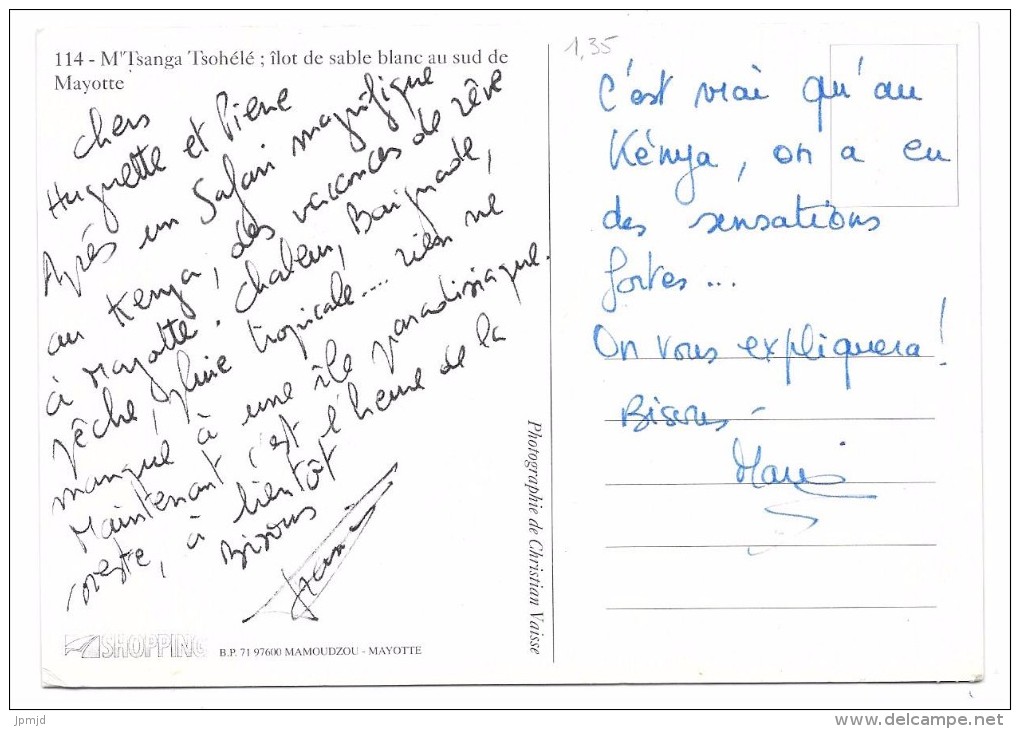 114 - M'Tsanga Tsohélé ; îlot de sable blanc au sud de
Mayotte
Chers
Huguette et Pierre
Après un Safari magnifique
au Kenya, des vacances de rêve
à Mayotte. Chaleur, Baignade,
pêche, pluie tropicale.... rien ne
manque à une île paradisiaque.
Maintenant c'est l'heure de la
sieste, à bientôt
Bisous
Photographie de Christian Vaisse
SHOPPING
B.P. 71 97600 MAMOUDZOU - MAYOTTE
1,35
C'est vrai qu'au
Kénya, on a eu
des sensations
fortes...
On vous expliquera !
Bisous -
Marie
jpmjd
www.delcampe.net